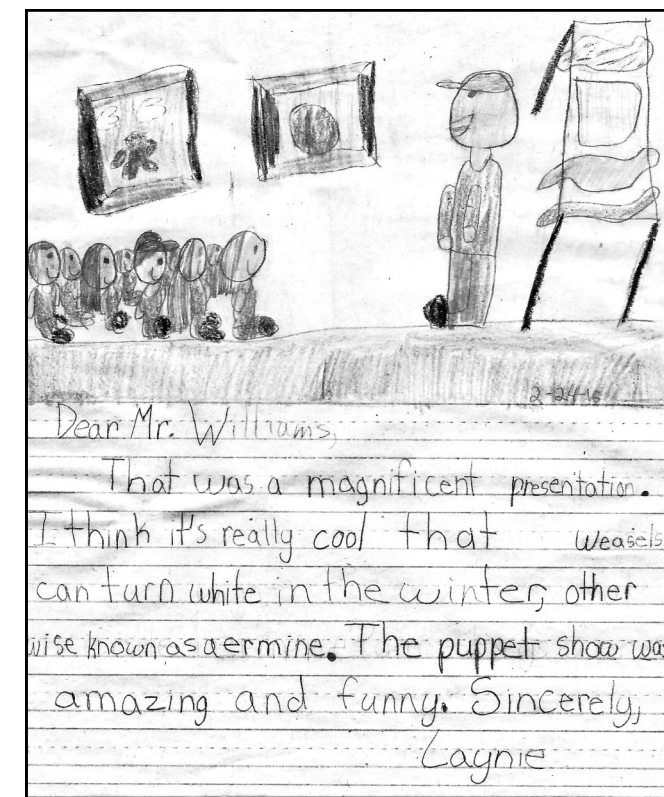 2-24-16
Dear Mr. Williams,
That was a magnificent presentation.
I think it's really cool that weasels
can turn white in the winter, other
wise known as a ermine. The puppet show was
amazing and funny. Sincerely,
Laynie